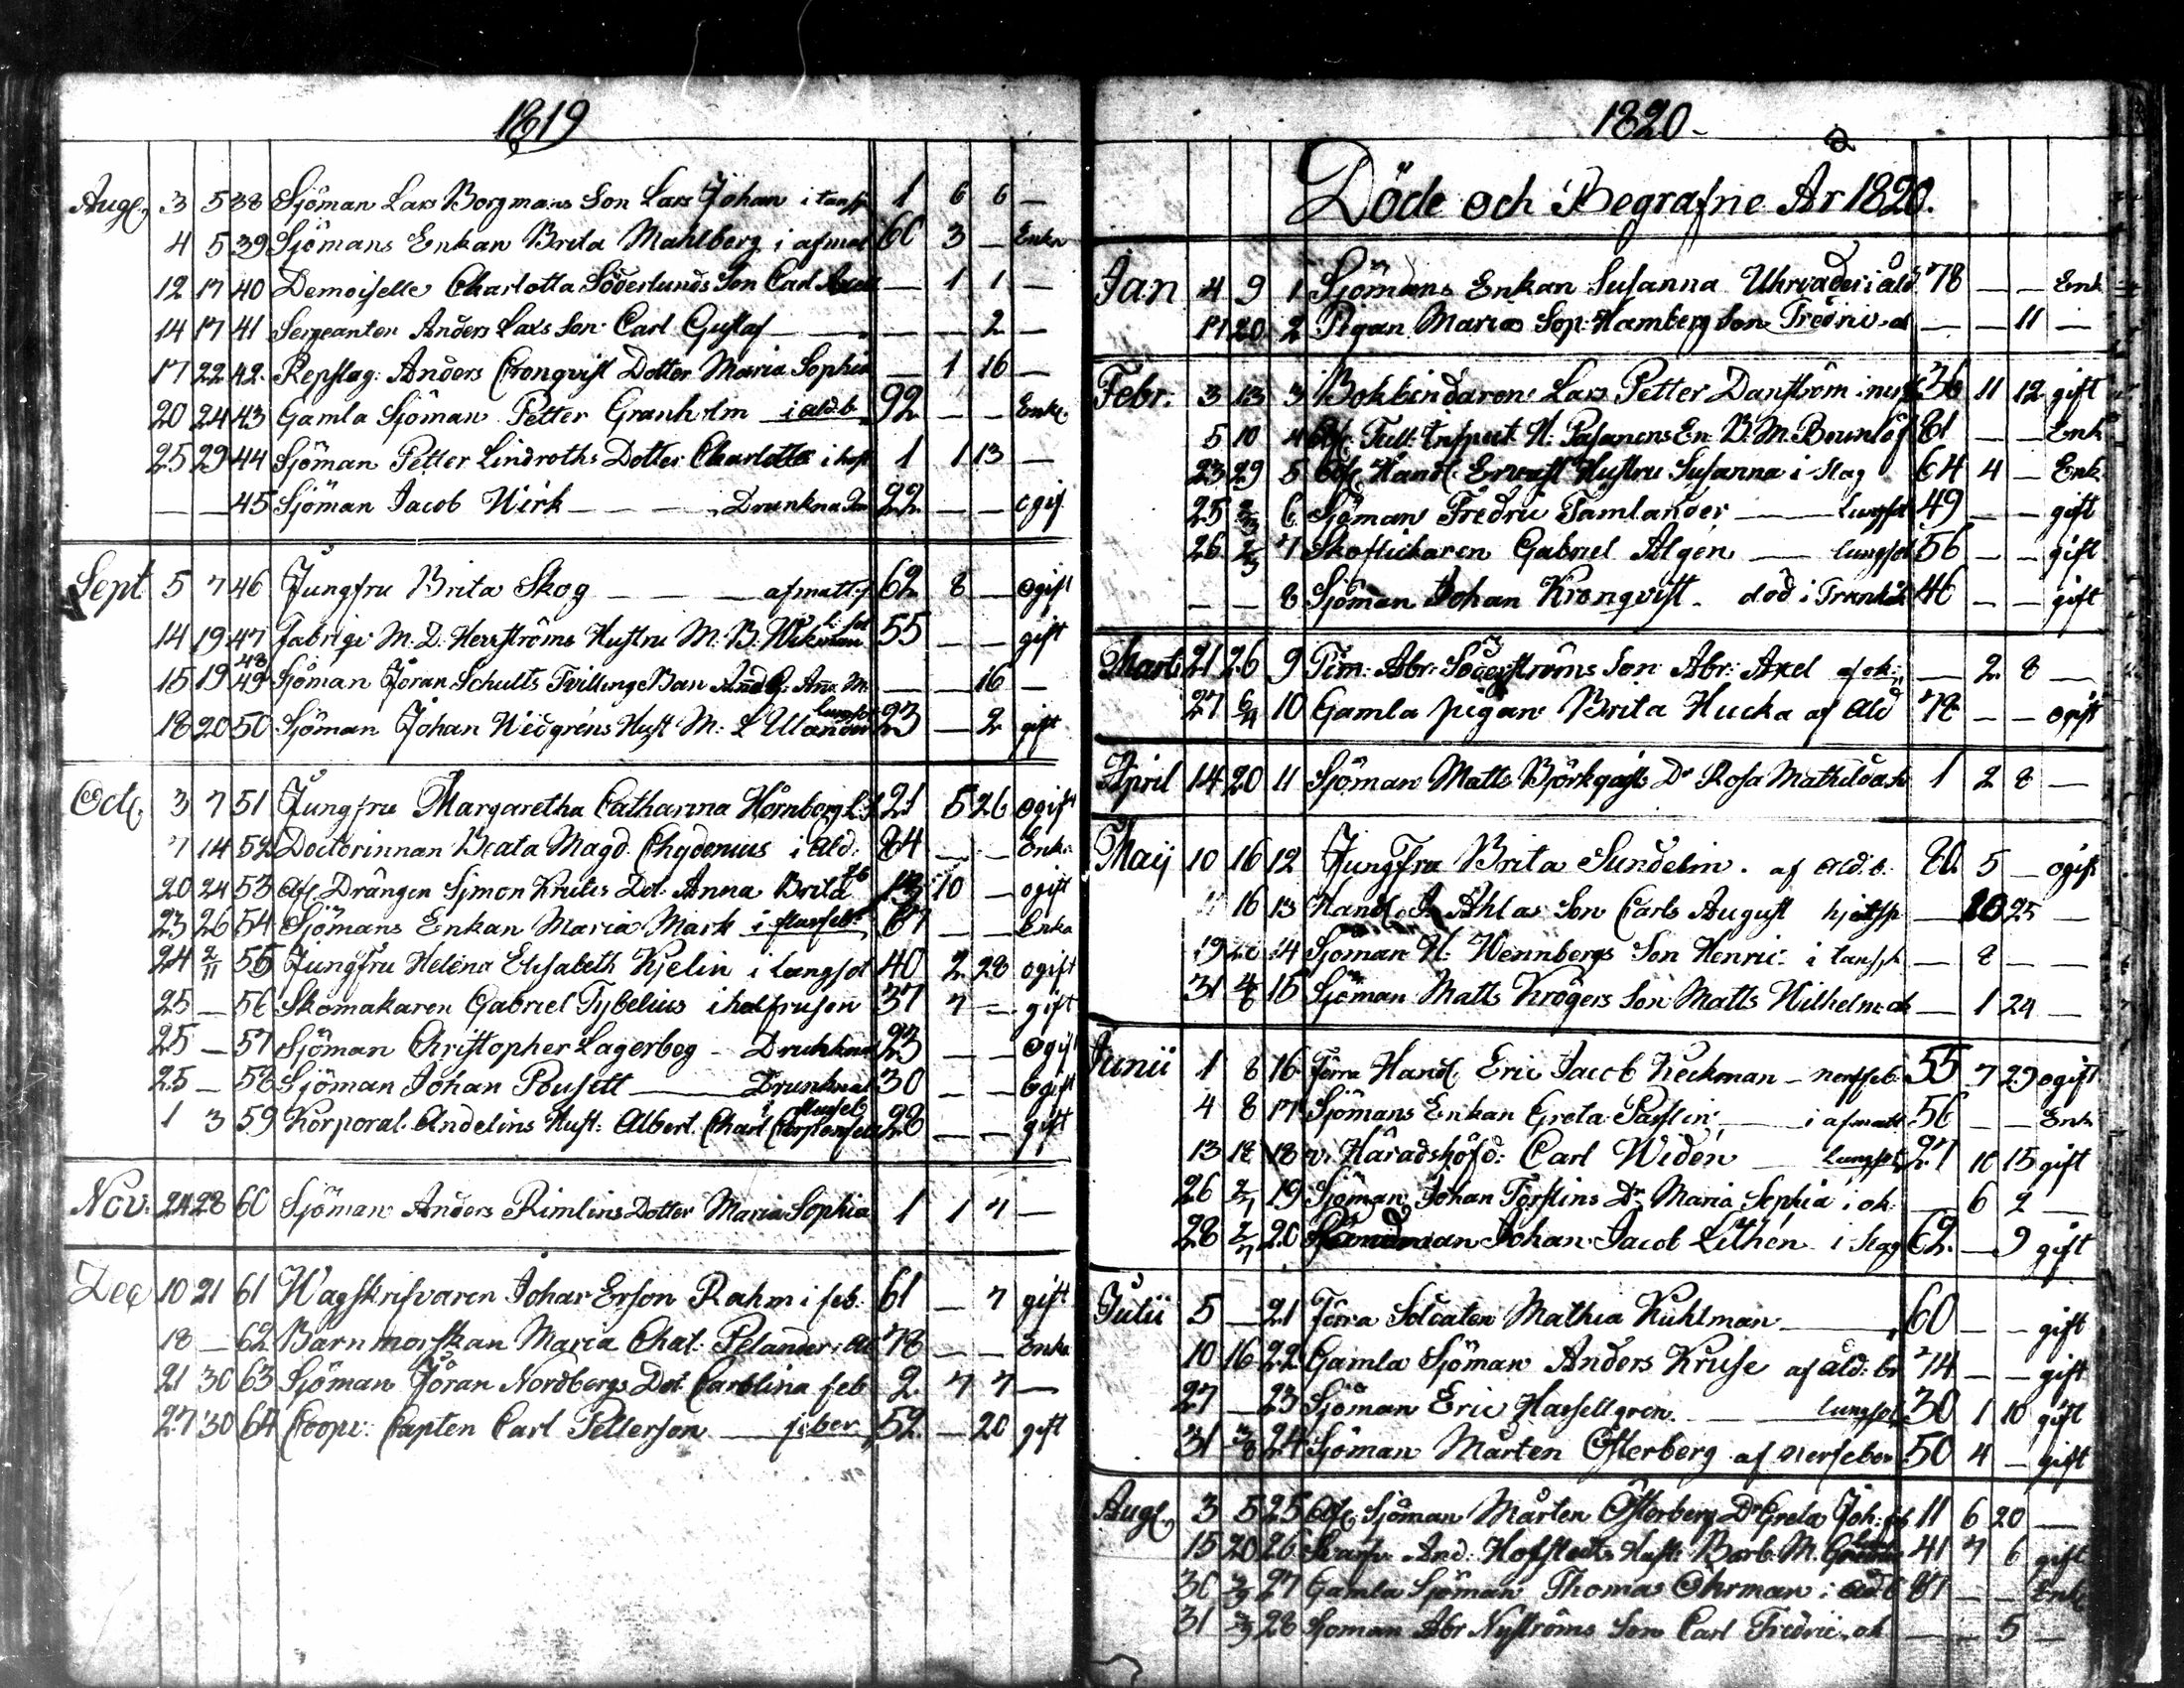 1819
Augt. 3 5 38 Sjöman Lars Borgmans Son Lars Johan i tansp 1 6 6 —
4 5 39 Sjömans Enkan Brita Mahlberg i afmat 60 3 — Enka
12 17 40 Demoiselle Charlotta Söderlunds Son Carl Axel — 1 1 —
14 17 41 Sergeanten Anders Lax's Son Carl Gustaf — — 2 —
17 22 42 Repslag: Anders Cronqvist Dotter Maria Sophia — 1 16 —
20 24 43 Gamla Sjöman Petter Granholm i åld.b. 92 — — Enkl.
25 29 44 Sjöman Petter Lindroths Dotter Charlotta i host 1 1 13 —
— — 45 Sjöman Jacob Wirk — — Drunknad 22 — — ogif
Sept 5 7 46 Jungfru Brita Skog — — afmatt. 62 8 — ogift
14 19 47 Fabriqv: M. D. Herrströms Hustru M: B: Wikman 55 — — gift
15 19 48 49 Sjöman Jöran Schults Tvillinge Barn And G: Ana M. — — 16 —
18 20 50 Sjöman Johan Widgréns Hust M: L Ulander lungsot 23 — 2 gift
Oct. 3 7 51 Jungfru Margaretha Catharina Hörnberg L.S 21 5 26 ogift
7 14 52 Doctorinnan Beata Magd. Chydenius i åld. 84 — — Enka
20 24 53 Afl. Drängen Simon Kruus Dot. Anna Brita 13 10 — ogift
23 26 54 Sjömans Enkan Maria Mark i flussfeb. 67 — — Enka
24 2/11 55 Jungfru Helena Elisabeth Kjelin i lungsot 40 2 28 ogift
25 — 56 Skomakaren Gabriel Tybelius ihelfrusen 37 7 — gift
25 — 57 Sjöman Christopher Lagerbog — Drunknad 23 — — ogift
25 — 58 Sjöman Johan Pousett — Drunknat 30 — — ogift
1 3 59 Korporal. Andelins Hust: Albert. Charl 28 — — gift
Nov: 24 28 60 Sjöman Anders Rimlins Dotter Maria Sophia 1 1 7 —
Dec 10 21 61 Wagskrifvaren Johan Erson Rahm i feb. 61 — 7 gift
18 — 62 Barnmorskan Maria Chat: Pelander. åld 78 — — Enka
21 30 63 Sjöman Jöran Nordbergs Dot Carolina feb 2 7 7 —
27 30 64 Coopv: Capten Carl Petterson — feber 52 — 20 gift
1820
Döde och Begrafne År 1820.
Jan 4 9 1 Sjömans Enkan Susanna Uhrväder i åld 78 — — Enk
17 20 2 Pigan Maria Sop. Hamberg Son Fredric — — 11 —
Febr: 3 13 3 Bokbindaren Lars Petter Danström i nerf 36 11 12 gift
5 10 4 Afl. Tull. Inspect. H. Pasanens En. B. M. 81 — — Enk
23 29 5 Afl. Handl. Hustru Susanna i slag 64 4 — Enk
25 2/3 6 Sjöman Fredric Tamlander — lungsot 49 — — gift
26 2/3 7 Skoflickaren Gabriel Algén — lungsot 56 — — gift
— — 8 Sjöman Johan Kronqvist — död i Frankrik 46 — — gift
Marti 21 26 9 Tim: Abr: Söderströms Son Abr: Axel af ok: — 2 8 —
27 6/4 10 Gamla pigan Brita Hucka af åld 78 — — ogift
April 14 20 11 Sjöman Matts Björkqvists Dr Rosa Mathilda 1 2 8 —
Maij 10 16 12 Jungfru Brita Sundelin. af åld. b. 80 5 — ogift
11 16 13 Handl. A Ahlas Son Carls August — 10 25 —
19 20 14 Sjöman H: Wennbergs Son Henric i tansp — 8 — —
31 4/6 15 Sjöman Matts Krögers Son Matts Wilhelm. ok — 1 24 —
Junii 1 8 16 Förra Handl. Eric Jacob Keckman — nerffeb. 55 7 29 ogift
4 8 17 Sjömans Enkan Greta Paslin — i afmatt 56 — — Enk
13 18 18 v. Häradshöfd: Carl Widén lungsot 27 10 15 gift
26 2/7 19 Sjöman Johan Förslins Dr. Maria Sophia i ok: — 6 2 —
28 2/7 20 Johan Jacob Lithén i slag 62 — 9 gift
Julii 5 — 21 Förra Soldaten Mathia Kuhlman — 60 — — gift
10 16 22 Gamla Sjöman Anders Kruse af åld: br 74 — — gift
27 — 23 Sjöman Eric Hasselgren — lungsot 30 1 10 gift
31 3/8 24 Sjöman Mårten Österberg af nerfeber 50 4 — gift
Augt. 3 5 25 Afl. Sjöman Mårten Österberg Dr Greta Joh: feb 11 6 20 —
15 20 26 And: Hofstedts Hust: Barb. M. 41 7 6 gift
30 3/9 27 Gamla Sjöman Thomas Öhrman i åld b 87 — — Enkl
31 3/9 28 Sjöman Abr Nyströms Son Carl Fredric. ok — — 5 —